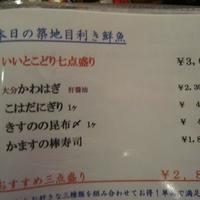 本日の築地目利き鮮魚
いいとこどり七点盛り ¥3,
大分かわはぎ 肝醤油 ¥2,30
こはだにぎり 1ヶ ¥
きすのの昆布〆 1ヶ ¥
かますの棒寿司 ¥1,8
おすすめ三点盛り ¥2,8
お好きな三種類を組み合わせてお得!単で満足